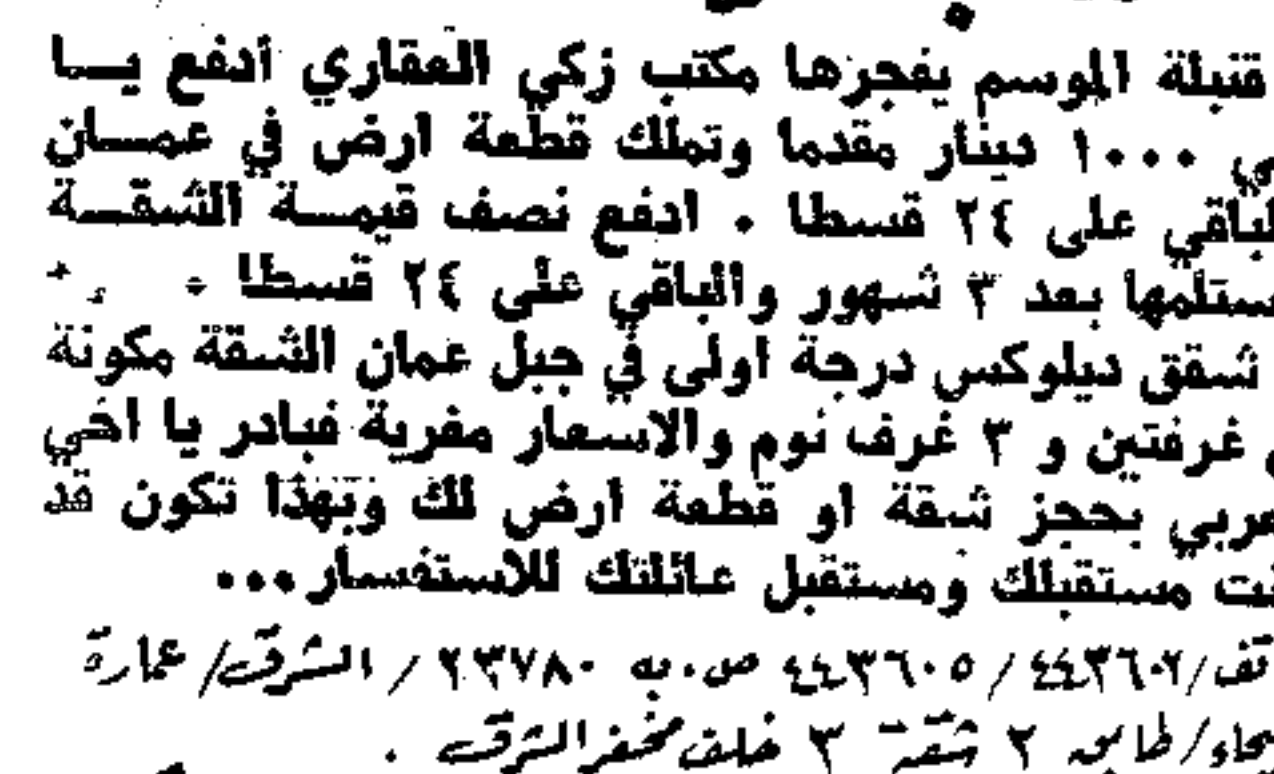 قنبلة الموسم يفجرها مكتب زكي العقاري أدفع يـــا
ي ١٠٠٠ دينار مقدما وتملك قطعة ارض في عمـــان
لباقي على ٢٤ قسطا . ادفع نصف قيمـــة الشقـــة
ستلمها بعد ٣ شهور والباقي على ٢٤ قسطا .
شقق ديلوكس درجة اولى في جبل عمان الشقة مكونة
غرفتين و ٣ غرف نوم والاسعار مغرية فبادر يا اخي
عربي بحجز شقة او قطعة ارض لك وبهذا تكون قد
نت مستقبلك ومستقبل عائلتك للاستفسار...
تف/٤٤٣٦٠٢ / ٤٤٣٦٠٥ ص.ب ٢٣٧٨٠ / الشرق/ عمارة
يحاء/طابق ٢ شقة ٣ خلف مخفر الشرق .